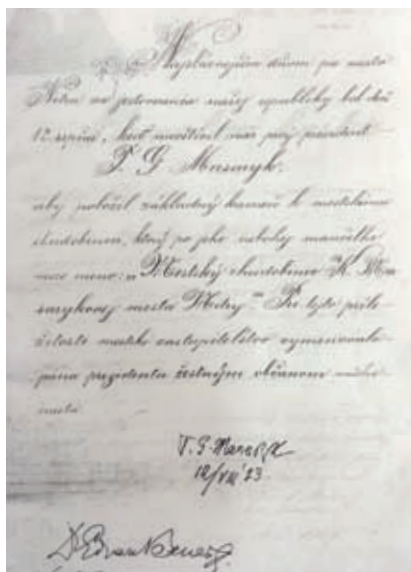 Najslávnejším dňom pre mesto
Nitra za jestvovania našej republiky bol deň
12. srpna, keď navštívil nás prvý prezident
T. G. Masaryk,
aby položil základný kameň k mestskému
chudobincu, ktorý po jeho nebohej manželke
nesie meno: „Mestský chudobinec K. Ma
sarykovej mesta Nitry“ Pri tejto príle
žitosti mestské zastupiteľstvo vymenovalo
pána prezidenta čestným občanom
mesta.
T. G. Masaryk
12/VIII 23.
Dr Edvard Beneš